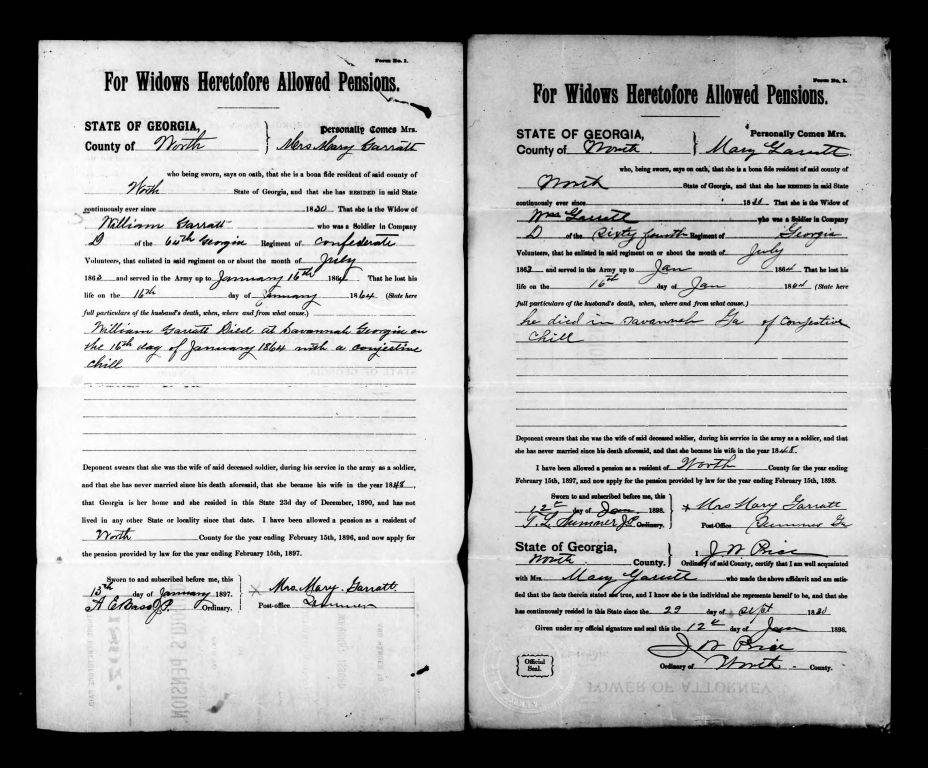 Form No. 1.
For Widows Heretofore Allowed Pensions.
STATE OF GEORGIA,
County of Worth
Personally Comes Mrs.
Mrs Mary Garratt
who being sworn, says on oath, that she is a bona fide resident of said county of
Worth State of Georgia, and that she has RESIDED in said State
continuously ever since 1830 That she is the Widow of
William Garratt who was a Soldier in Company
D of the 64th Georgia Regiment of Confederate
Volunteers, that enlisted in said regiment on or about the month of July
1863 and served in the Army up to January 16th 1864 That he lost his
life on the 16th day of January 1864 (State here
full particulars of the husband's death, when, where and from what cause.)
William Garratt Died at Savannah Georgia on
the 16th day of January 1864 with a conjestive
chill
Deponent swears that she was the wife of said deceased soldier, during his service in the army as a soldier,
and that she has never married since his death aforesaid, that she became his wife in the year 1848,
that Georgia is her home and she resided in this State 23d day of December, 1890, and has not
lived in any other State or locality since that date. I have been allowed a pension as a resident of
Worth County for the year ending February 15th, 1896, and now apply for
the pension provided by law for the year ending February 15th, 1897.
Sworn to and subscribed before me, this
13th day of January 1897.
Ordinary.
Mrs. Mary Garratt
Post-office Sumner
Form No. 1.
For Widows Heretofore Allowed Pensions.
STATE OF GEORGIA,
County of Worth
Personally Comes Mrs.
Mary Garrett
who, being sworn, says on oath, that she is a bona fide resident of said county of
Worth State of Georgia, and that she has RESIDED in said State
continuously ever since That she is the Widow of
Wm Garrett who was a Soldier in Company
D of the Sixty fourth Regiment of Georgia
Volunteers, that he enlisted in said regiment on or about the month of July
1863 and served in the Army up to Jan 1864 That he lost his
life on the 16th day of Jan 1864 (State here
full particulars of the husband's death, when, where and from what cause.)
he died in Savannah Ga of Conjestive
Chill
Deponent swears that she was the wife of said deceased soldier, during his service in the army as a soldier, and that
she has never married since his death aforesaid, and that she became his wife in the year 1848.
I have been allowed a pension as a resident of Worth County for the year ending
February 15th, 1897, and now apply for the pension provided by law for the year ending February 15th, 1898.
Sworn to and subscribed before me, this
12th day of Jan 1898.
T. L. Sumner J.P. Ordinary.
x Mrs Mary Garratt
Post-Office Sumner Ga
State of Georgia,
Worth County.
I J W Price
Ordinary of said County, certify that I am well acquainted
with Mrs. Mary Garrett who made the above affidavit and am satis-
fied that the facts therein stated are true, and I know she is the individual she represents herself to be, and that she
has continuously resided in this State since the 29 day of Sept 1830
Given under my official signature and seal this the 12th day of Jan 1898.
J W Price
Official
Seal.
Ordinary of Worth County.
POWER OF ATTORNEY